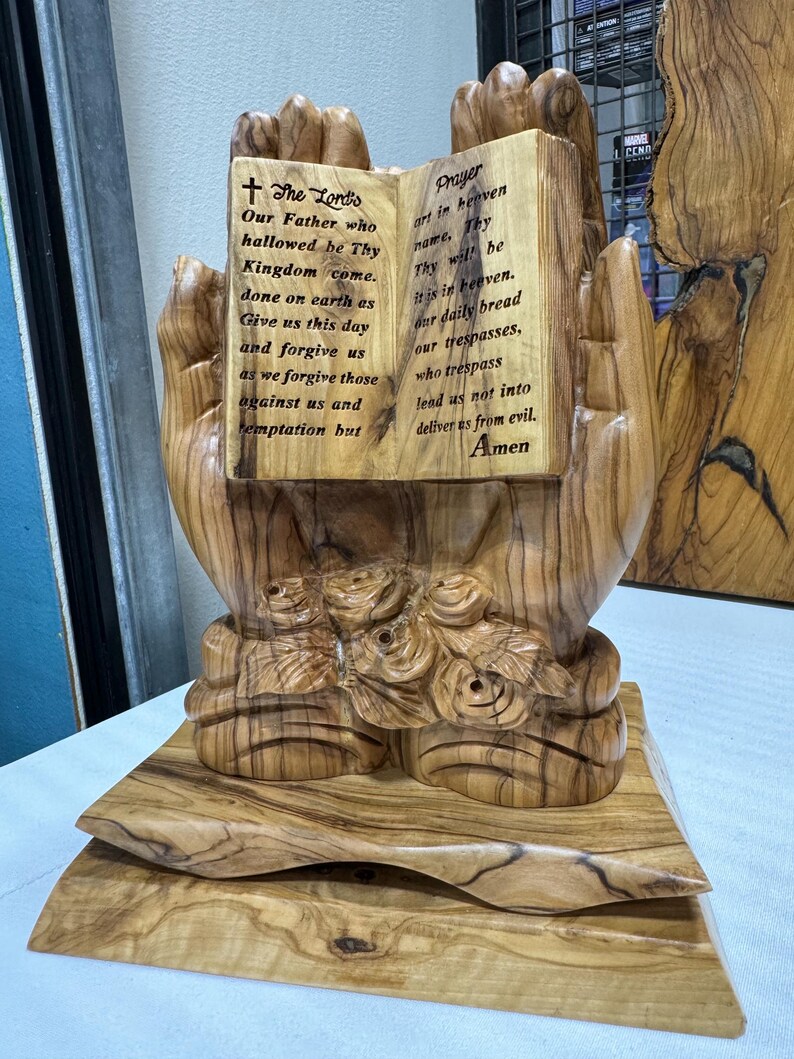 The Lord's Prayer
Our Father who art in heeven
hallowed be Thy name, Thy
Kingdom come. Thy will be
done on earth as it is in heeven.
Give us this day our daily bread
and forgive us our trespasses,
as we forgive those who trespass
against us and lead us not into
temptation but deliver us from evil.
Amen
ATTENTION:
MARVEL